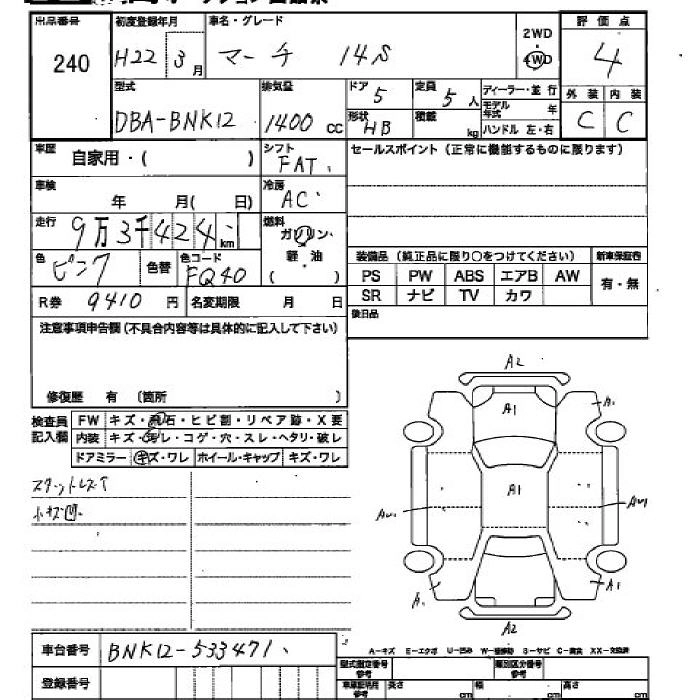 出品番号 初度登録年月 車名・グレード 2WD 評価点
240 H22 3月 マーチ 14S 4WD 4
型式 排気量 ドア 5 定員 5人 ディーラー・並行 外装 内装
DBA-BNK12 1400cc 形状 HB 積載 kg モデル年式 年 C C
ハンドル 左・右
車歴 自家用・( ) シフト FAT セールスポイント(正常に機能するものに限ります)
車検 年 月( 日) 冷房 AC
走行 9万3千424km 燃料 ガソリン・
色 ピンク 色替 色コード FQ40 軽・油 装備品(純正品に限り○をつけてください) 新車保証書
( ) PS PW ABS エアB AW 有・無
R券 9410円 名変期限 月 日 SR ナビ TV カワ
注意事項申告欄(不具合内容等は具体的に記入して下さい) 後日品
修復歴 有 (箇所 )
検査員記入欄 FW キズ・飛石・ヒビ割・リペア跡・X要
内装 キズ・汚レ・コゲ・穴・スレ・ヘタリ・破レ
ドアミラー キズ・ワレ ホイール・キャップ キズ・ワレ
スタットレスT
小キズ凹
A2
A1
A1
A1
A2
車台番号 BNK12-533471
A-キズ E-エクボ U-凹み W-補修跡 S-サビ C-腐食 XX-交換済
登録番号 型式指定番号参考 類別区分番号参考
車庫証明用参考 長さ cm 幅 cm 高さ cm